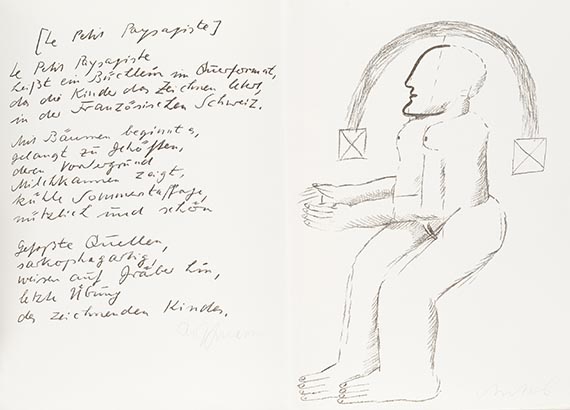 [Le Petit Paysagiste]
Le Petit Paysagiste
heißt ein Büchlein im Querformat,
das die Kinder das Zeichnen lehrt,
in der Französischen Schweiz.
Mit Bäumen beginnt es,
gelangt zu Gehöften,
deren Vordergrund
Milchkannen zeigt,
kühle Sommerstaffage,
nützlich und schön
Gefasste Quellen,
sarkophagartig,
weisen auf Gräber hin,
letzte Übung
des zeichnenden Kindes.